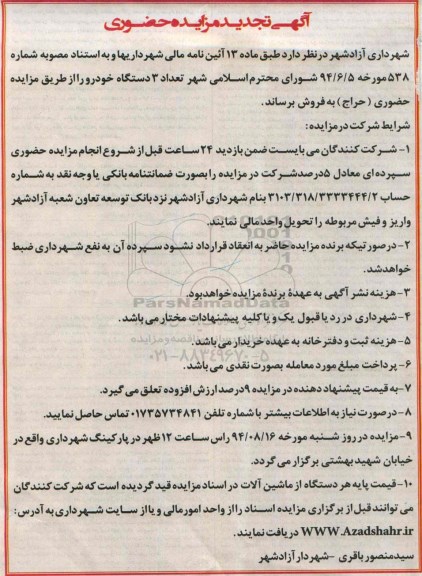 آگهی تجدید مزایده حضوری
شهرداری آزادشهر در نظر دارد طبق ماده ۱۳ آئین نامه مالی شهرداریها و به استناد مصوبه شماره
۵۳۸ مورخه ۹۴/۶/۵ شورای محترم اسلامی شهر تعداد ۳ دستگاه خودرو را از طریق مزایده
حضوری (حراج) به فروش برساند.
شرایط شرکت در مزایده:
۱- شرکت کنندگان می بایست ضمن بازدید ۲۴ ساعت قبل از شروع انجام مزایده حضوری
سپرده ای معادل ۵ درصد شرکت در مزایده را بصورت ضمانتنامه بانکی یا وجه نقد به شماره
حساب ۳۱۰۳/۳۱۸/۳۳۳۳۴۴۴/۲ بنام شهرداری آزادشهر نزد بانک توسعه تعاون شعبه آزادشهر
واریز و فیش مربوطه را تحویل واحد مالی نمایند.
۲- در صورتیکه برنده مزایده حاضر به انعقاد قرارداد نشود سپرده آن به نفع شهرداری ضبط
خواهد شد.
۳- هزینه نشر آگهی به عهدهٔ برندهٔ مزایده خواهد بود.
ParsNamadData
۴- شهرداری در رد یا قبول یک و یا کلیه پیشنهادات مختار می باشد.
۵- هزینه ثبت و دفترخانه به عهده خریدار می باشد.
۰۲۱-۸۸۳۴۹۶۷۰-۵
۶- پرداخت مبلغ مورد معامله بصورت نقدی می باشد.
۷- به قیمت پیشنهاد دهنده در مزایده ۹ درصد ارزش افزوده تعلق می گیرد.
۸- در صورت نیاز به اطلاعات بیشتر با شماره تلفن ۰۱۷۳۵۷۳۴۸۴۱ تماس حاصل نمایید.
۹- مزایده در روز شنبه مورخه ۹۴/۰۸/۱۶ راس ساعت ۱۲ ظهر در پارکینگ شهرداری واقع در
خیابان شهید بهشتی برگزار می گردد.
۱۰- قیمت پایه هر دستگاه از ماشین آلات در اسناد مزایده قید گردیده است که شرکت کنندگان
می توانند قبل از برگزاری مزایده اسناد را از واحد امور مالی و یا از سایت شهرداری به آدرس:
WWW.Azadshahr.ir دریافت نمایند.
سید منصور باقری - شهردار آزادشهر